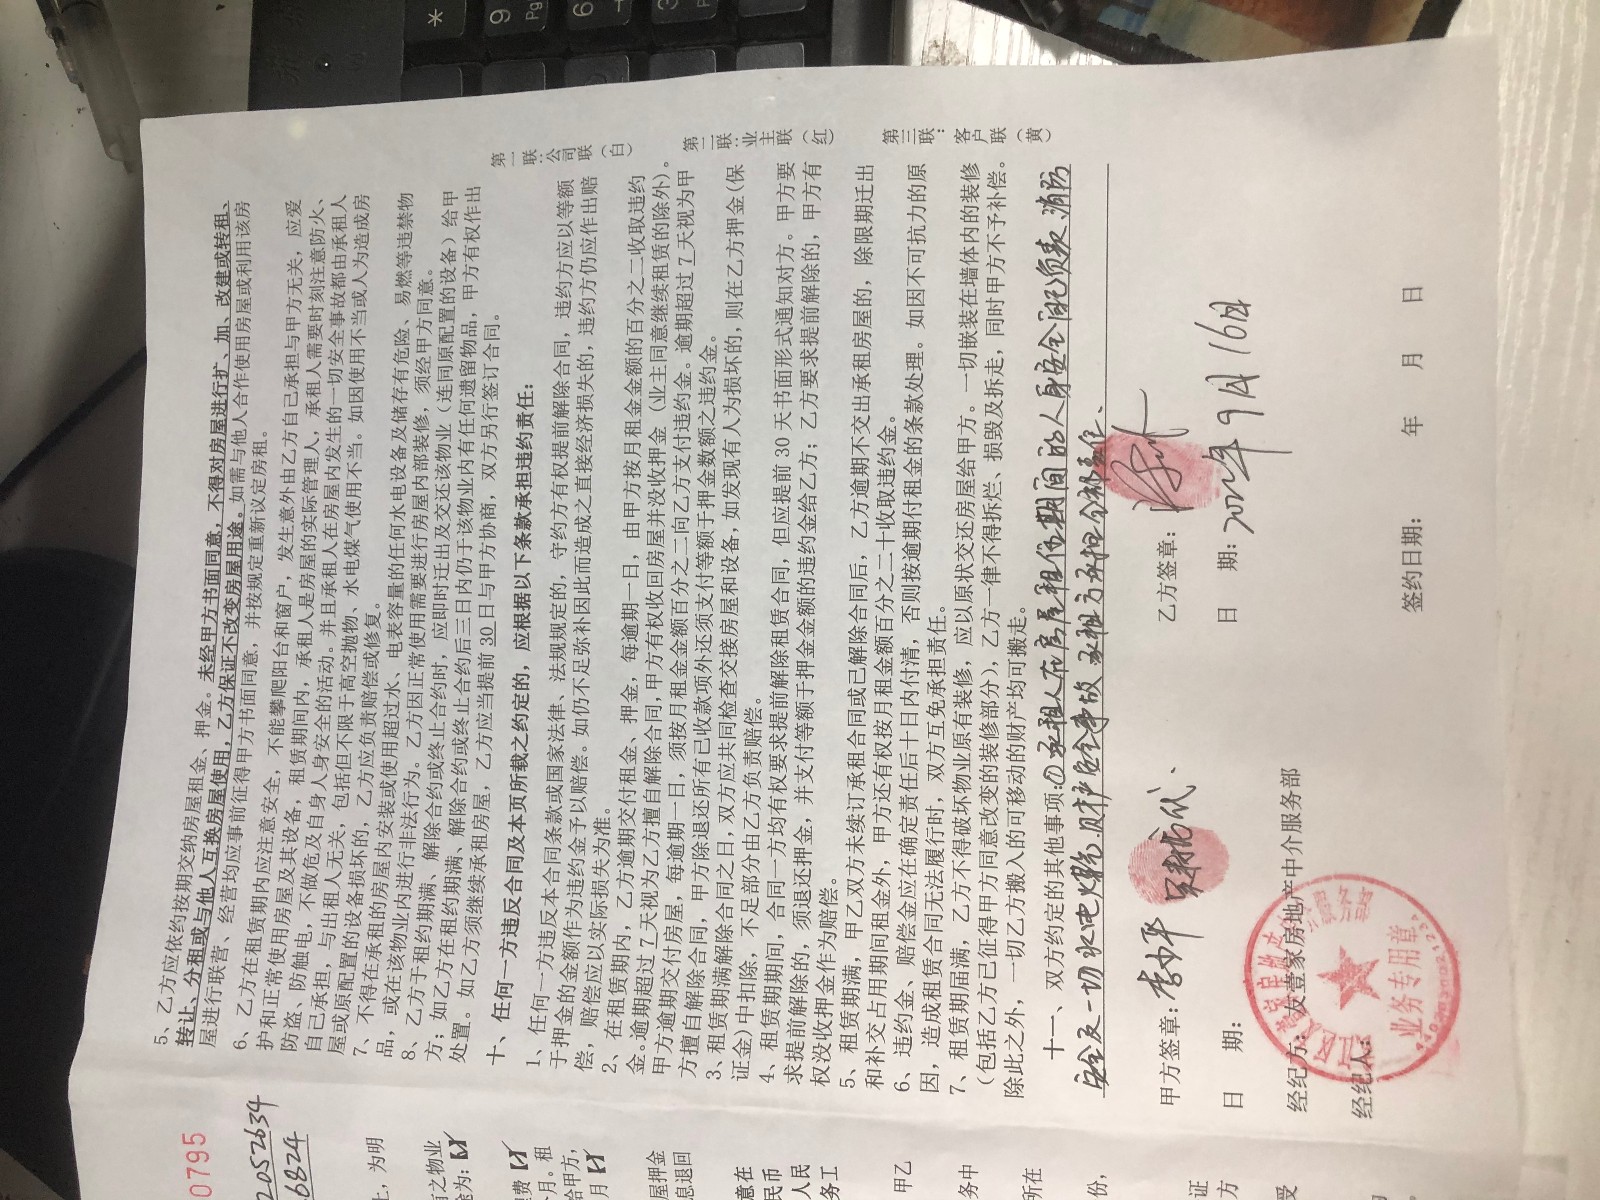 5、乙方应依约按期交纳房屋租金、押金。未经甲方书面同意，不得对房屋进行扩、加、改建或转租、
转让、分租或与他人互换房屋使用，乙方保证不改变房屋用途。如需与他人合作使用房屋或利用该房
屋进行联营、经营均应事前征得甲方书面同意，并按规定重新议定房租。
6、乙方在租赁期内应注意安全，不能攀爬阳台和窗户，发生意外由乙方自己承担与甲方无关，应爱
护和正常使用房屋及其设备，租赁期间内，承租人是房屋的实际管理人，承租人需要时刻注意防火、
防盗、防触电，不做危及自身人身安全的活动。并且承租人在房屋内发生的一切安全事故都由承租人
自己承担，与出租人无关，包括但不限于高空抛物、水电煤气使用不当。如因使用不当或人为造成房
屋或原配置的设备损坏的，乙方应负责赔偿或修复。
7、不得在承租的房屋内安装或使用超过水、电表容量的任何水电设备及储存有危险、易燃等违禁物
品，或在该物业内进行非法行为。乙方因正常使用需要进行房屋内部装修，须经甲方同意。
8、乙方于租约期满、解除合约或终止合约时，应即时迁出及交还该物业（连同原配置的设备）给甲
方；如乙方在租约期满、解除合约或终止合约后三日内仍于该物业内有任何遗留物品，甲方有权作出
处置。如乙方须继续承租房屋，乙方应当提前 30 日与甲方协商，双方另行签订合同。
十、任何一方违反合同及本页所载之约定的，应根据以下条款承担违约责任：
1、任何一方违反本合同条款或国家法律、法规规定的，守约方有权提前解除合同，违约方应以等额
于押金的金额作为违约金予以赔偿。如仍不足弥补因此而造成之直接经济损失的，违约方仍应作出赔
偿，赔偿应以实际损失为准。
2、在租赁期内，乙方逾期交付租金、押金，每逾期一日，由甲方按月租金金额的百分之二收取违约
金。逾期超过 7 天视为乙方擅自解除合同，甲方有权收回房屋并没收押金（业主同意继续租赁的除外）。
甲方逾期交付房屋，每逾期一日，须按月租金金额百分之二向乙方支付违约金。逾期超过 7 天视为甲
方擅自解除合同，甲方除退还所有已收款项外还须支付等额于押金数额之违约金。
3、租赁期满解除合同之日，双方应共同检查交接房屋和设备，如发现有人为损坏的，则在乙方押金（保
证金）中扣除，不足部分由乙方负责赔偿。
4、租赁期期间，合同一方均有权要求提前解除租赁合同，但应提前 30 天书面形式通知对方。甲方要
求提前解除的，须退还押金，并支付等额于押金金额的违约金给乙方；乙方要求提前解除的，甲方有
权没收押金作为赔偿。
5、租赁期满，甲乙双方未续订承租合同或已解除合同后，乙方逾期不交出承租房屋的，除限期迁出
和补交占用期间租金外，甲方还有权按月租金额百分之二十收取违约金。
6、违约金、赔偿金应在确定责任后十日内付清，否则按逾期付租金的条款处理。如因不可抗力的原
因，造成租赁合同无法履行时，双方互免承担责任。
7、租赁期届满，乙方不得破坏物业原有装修，应以原状交还房屋给甲方。一切嵌装在墙体内的装修
（包括乙方已征得甲方同意改变的装修部分），乙方一律不得拆烂、损毁及拆走，同时甲方不予补偿。
除此之外，一切乙方搬入的可移动的财产均可搬走。
十一、双方约定的其他事项：①承租人在房屋租住期间的人身安全问题负责 消防
安全及一切水电燃气财产安全事故 承租方承担全部责任、
甲方签章：李少平 代、
乙方签章：
日 期：
日 期：2022年9月16日
经纪方：友壹家房地产中介服务部
经纪人：
签约日期： 年 月 日
业务专用章
第一联：公司联（白）
第二联：业主联（红）
第三联：客户联（黄）
0795
2052634
6824
上，为明
有之物业
途为：
费
个月。租
给甲方，
月
屋押金
息退回
意在
民币
人民
务工
甲乙
务中
所在
份，
证
方
受
的
*
9
Pg
6
3